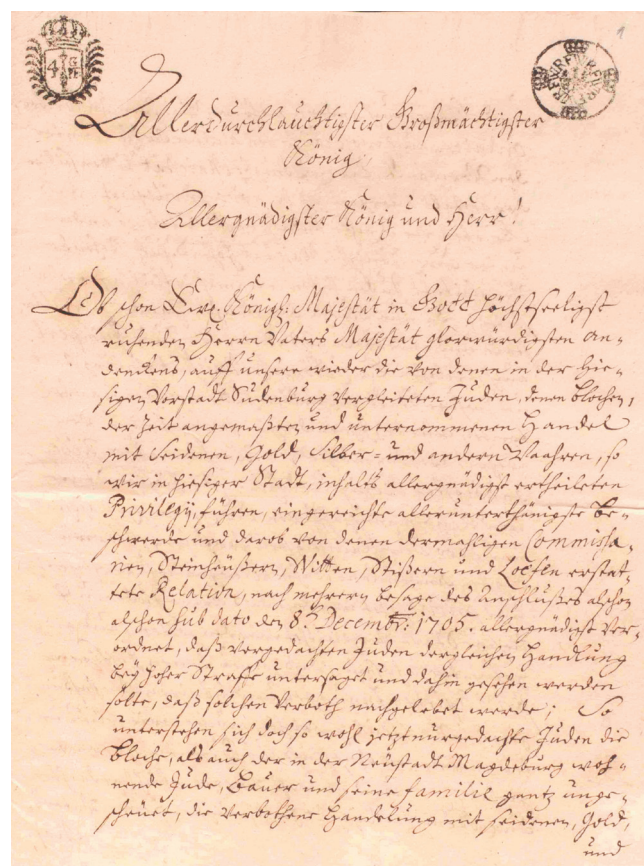 1
4 Gr
FWR FWR FWR FWR
Allerdurchlauchtigster Großmächtigster
König
Allergnädigster König und Herr!
Ob schon Ew. Königl: Majestät in Gott höchstseeligst
ruhenden Herrn Vaters Majestät glorwürdigsten An-
denckens, auff unsere wieder die von denen in der hie-
sigen Vorstadt Sudenburg vergleiteten Juden, denen Blochen,
der Zeit angemaßten und unternommenen Handel
mit seidenen, Gold, Silber- und andern Waahren, so
wir in hiesiger Stadt, inhalts allergnädigst ertheileten
Privilegij, führen, eingereichte allerunterthänigste Be-
schwerde und darob von denen dermahligen Commissa-
rien, Steinhäußern, Witten, Stißern und Loefen erstat-
tete Relation, nach mehrern besage des Anschlußes alschon
alschon sub dato den 8. Decembr: 1705. allergnädigst ver-
ordnet, daß vorgedachten Juden dergleichen Handlung
bey hoher Straffe untersaget und dahin gesehen werden
solte, daß solchen Verboth nachgelebet werde; So
unterstehen sich doch so wohl jetzt nurgedachte Juden die
Bloche, als auch der in der Neustadt Magdeburg woh-
nende Jude, Bauer und seine familie gantz unge-
scheuet, die verbothene Handelung mit seidenen, Gold,
und